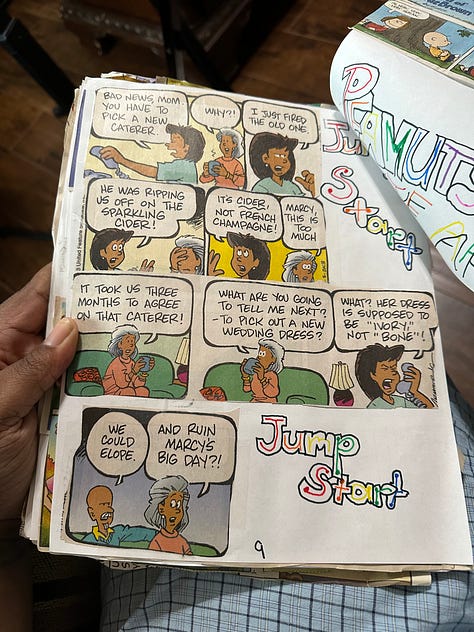 BAD NEWS, MOM
YOU HAVE TO
PICK A NEW
CATERER.
WHY?!
I JUST FIRED
THE OLD ONE.
HE WAS RIPPING
US OFF ON THE
SPARKLING
CIDER!
IT'S CIDER!
NOT FRENCH
CHAMPAGNE!
MARCY,
THIS IS
TOO
MUCH
IT TOOK US THREE
MONTHS TO AGREE
ON THAT CATERER!
WHAT ARE YOU GOING
TO TELL ME NEXT?
-TO PICK OUT A NEW
WEDDING DRESS?
WHAT? HER DRESS
IS SUPPOSED TO
BE "IVORY,"
NOT "BONE"!
WE
COULD
ELOPE.
AND RUIN
MARCY'S
BIG DAY?!
Jump
Start
9
PEANUTS